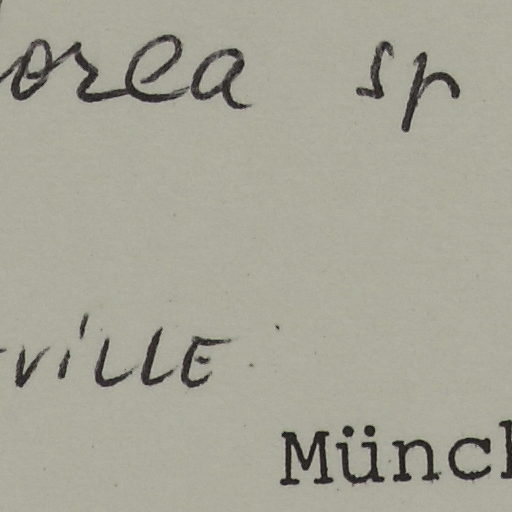 orea sp
ville
Münch